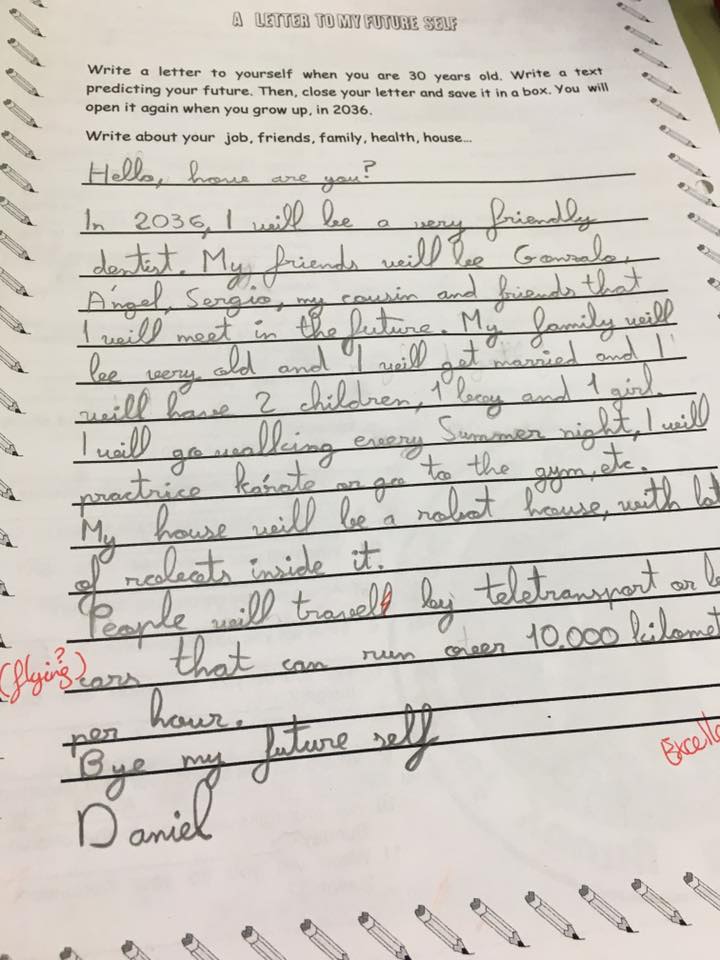 A LETTER TO MY FUTURE SELF
Write a letter to yourself when you are 30 years old. Write a text
predicting your future. Then, close your letter and save it in a box. You will
open it again when you grow up, in 2036.
Write about your job, friends, family, health, house...
Hello, howe are you?
In 2036, I will be a very friendly
dentist. My friends will be Gonzalo,
Ángel, Sergio, my cousin and friends that
I will meet in the future. My family will
be very old and I will get married and I
will have 2 children, 1 boy and 1 girl.
I will go walking every Summer night, I will
practrice kárate or go to the gym, etc.
My house will be a robot house, with lot
of robots inside it.
People will travell by teletransport or
(flying?) cars that can run over 10.000 kilomet
per hour.
Bye my future self
Excelle
Daniel